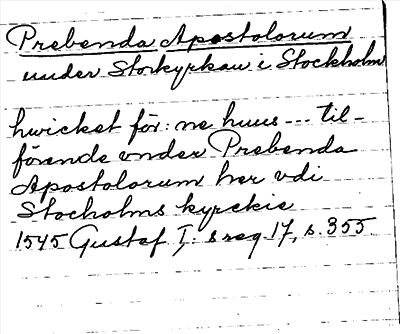 Prebenda Apostolorum
under Storkyrkan i Stockholm
hwicket för:ne huus --- til-
förende vnder Prebenda
Apostolorum her vdi
Stocholms kyrckie
1545 Gustaf I: s reg. 17, s. 355.